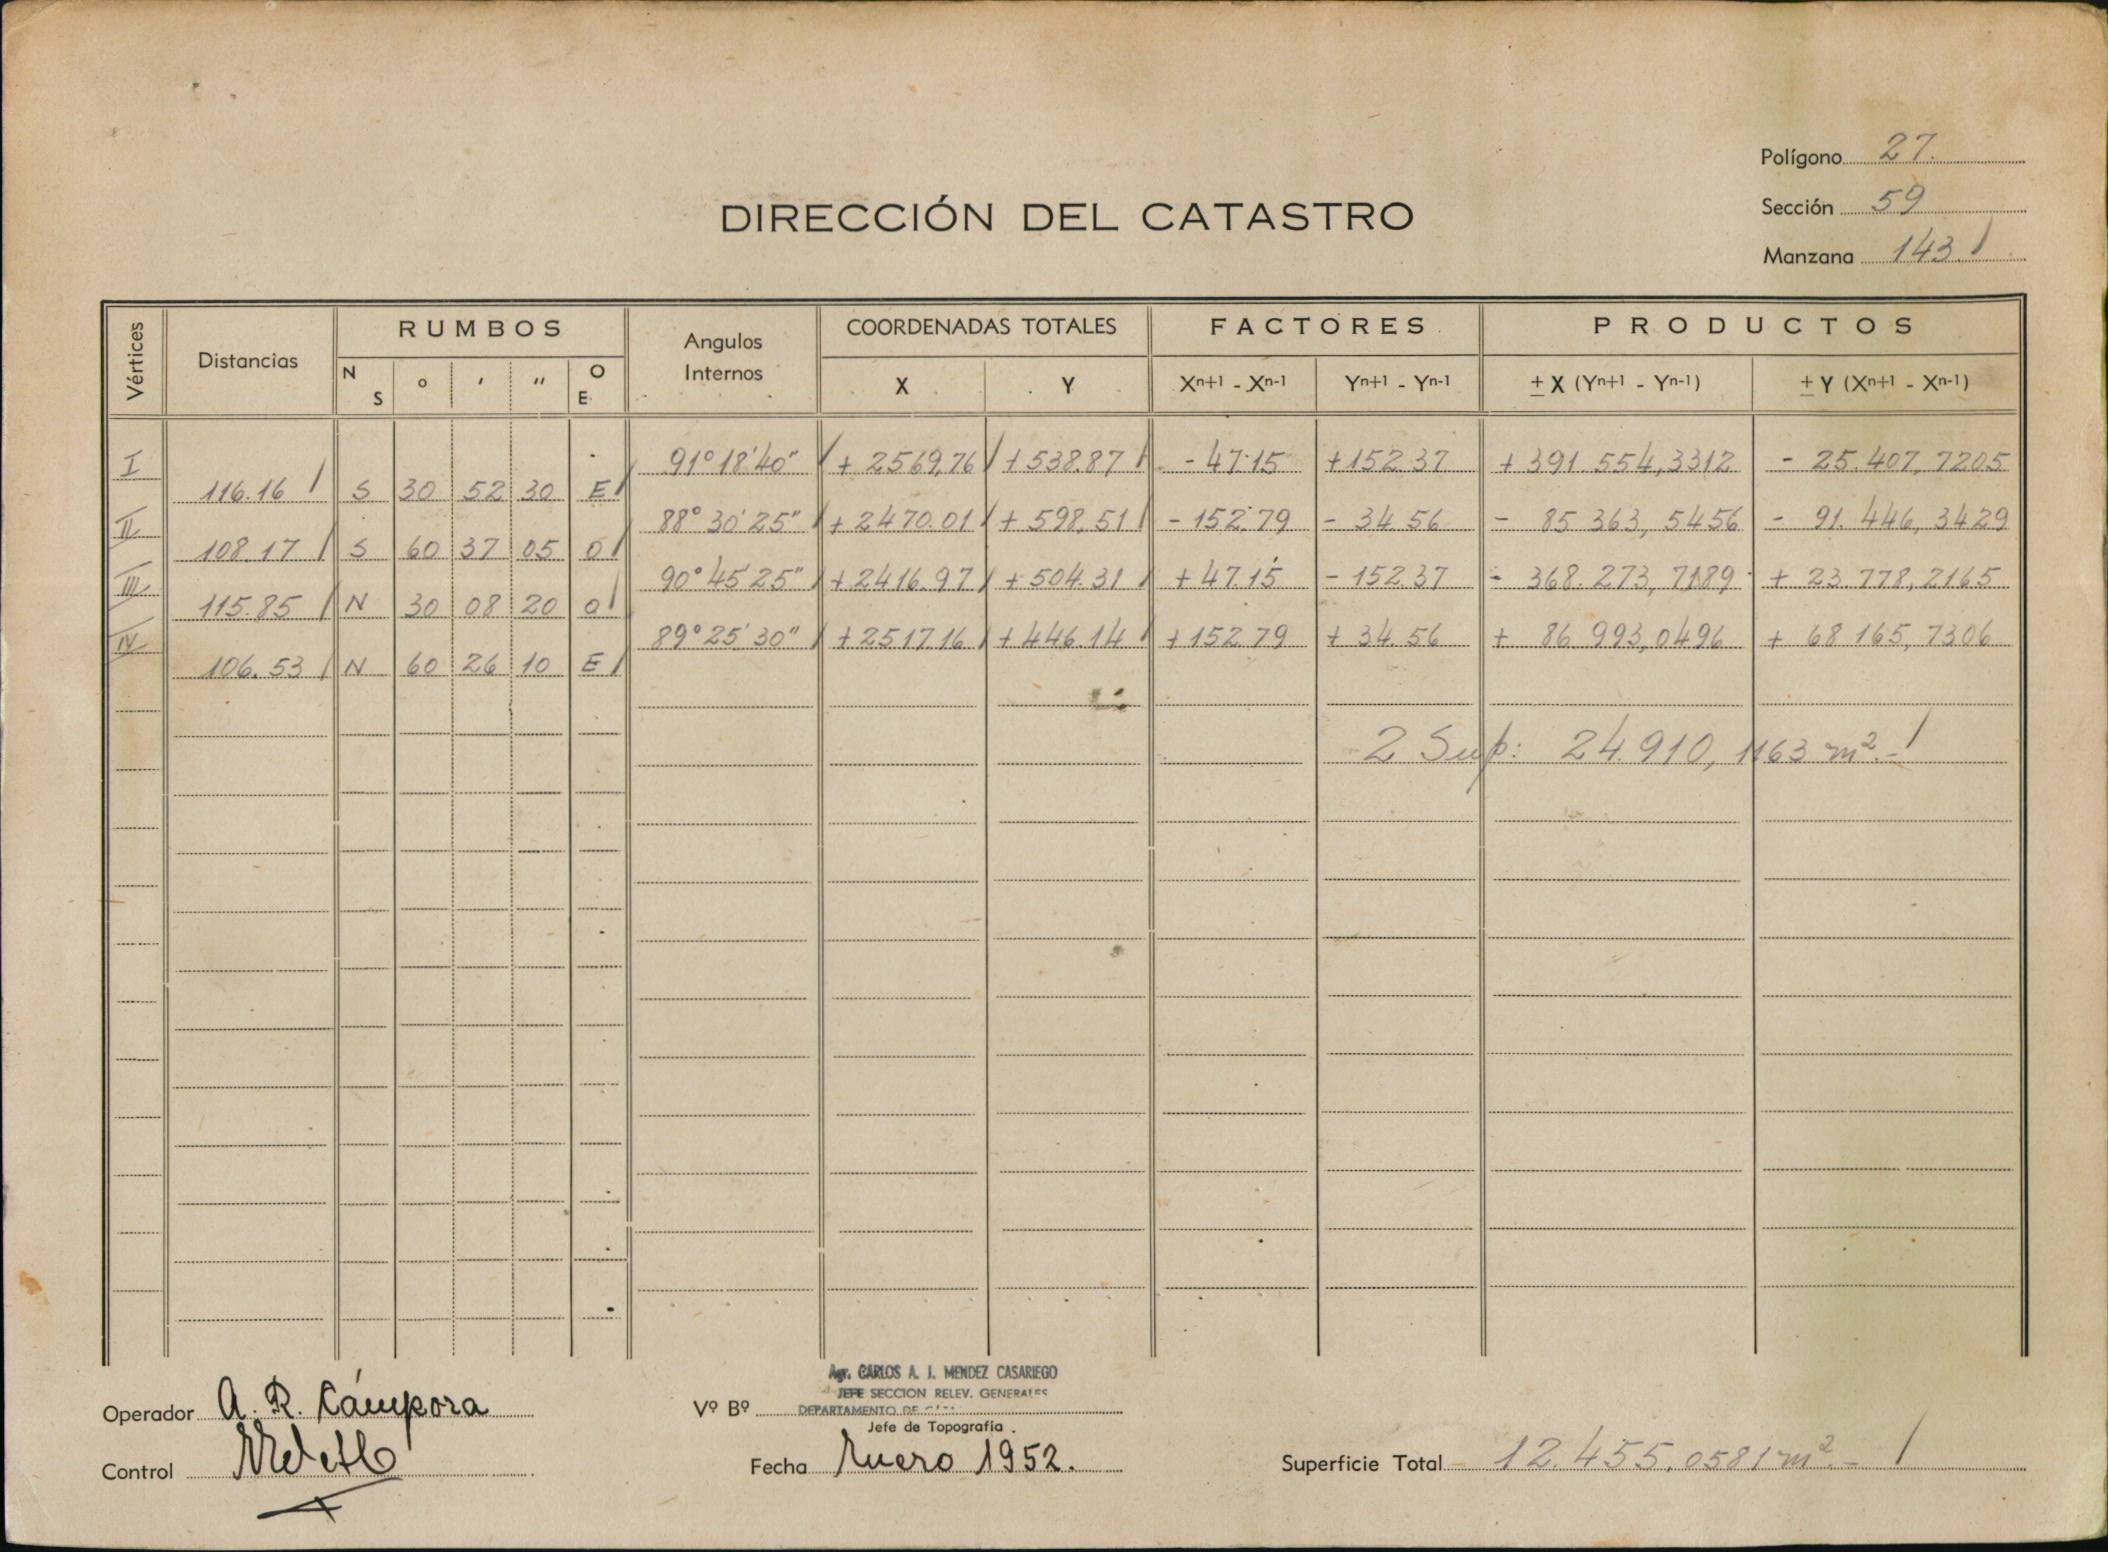 Polígono 27.
Sección 59
Manzana 143
DIRECCIÓN DEL CATASTRO
Vértices Distancias RUMBOS Angulos Internos COORDENADAS TOTALES FACTORES PRODUCTOS
N S ° ′ ″ O E X Y Xn+1 - Xn-1 Yn+1 - Yn-1 ± X (Yn+1 - Yn-1) ± Y (Xn+1 - Xn-1)
I 91° 18' 40" + 2569,76 + 538.87 - 47.15 + 152.37 + 391.554,3312 - 25.407,7205
116.16 S 30 52 30 E
II 88° 30' 25" + 2470.01 + 598,51 - 152.79 - 34.56 - 85.363,5456 - 91.446,3429
108.17 S 60 37 05 O
III 90° 45' 25" + 2416.97 + 504.31 + 47.15 - 152.37 - 368.273,7189 + 23.778,2165
115.85 N 30 08 20 O
IV 89° 25' 30" + 2517.16 + 446.14 + 152.79 + 34.56 + 86.993,0496 + 68.165,7306
106.53 N 60 26 10 E
2 Sup: 24.910,1163 m².-
Agr. CARLOS A. J. MENDEZ CASARIEGO
JEFE SECCION RELEV. GENERALES
DEPARTAMENTO DE
Operador A. R. Cámpora Vº Bº
Jefe de Topografía.
Control Fecha Enero 1952. Superficie Total 12.455,0581 m².-